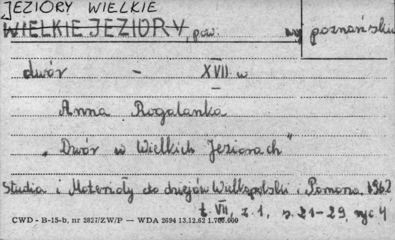 JEZIORY WIELKIE
WIELKIE JEZIORY, pow. woj. poznańskie
dwór - XVII w
Anna Rogalanka
„Dwór w Wielkich Jeziorach"
Studia i Materiały do dziejów Wielkopolski i Pomorza, 1962
t. VII, z. 1, s. 21-29, ryc. 4
CWD - B-15-b, nr 2827/ZW/P — WDA 2694 13.12.62 1.700.000